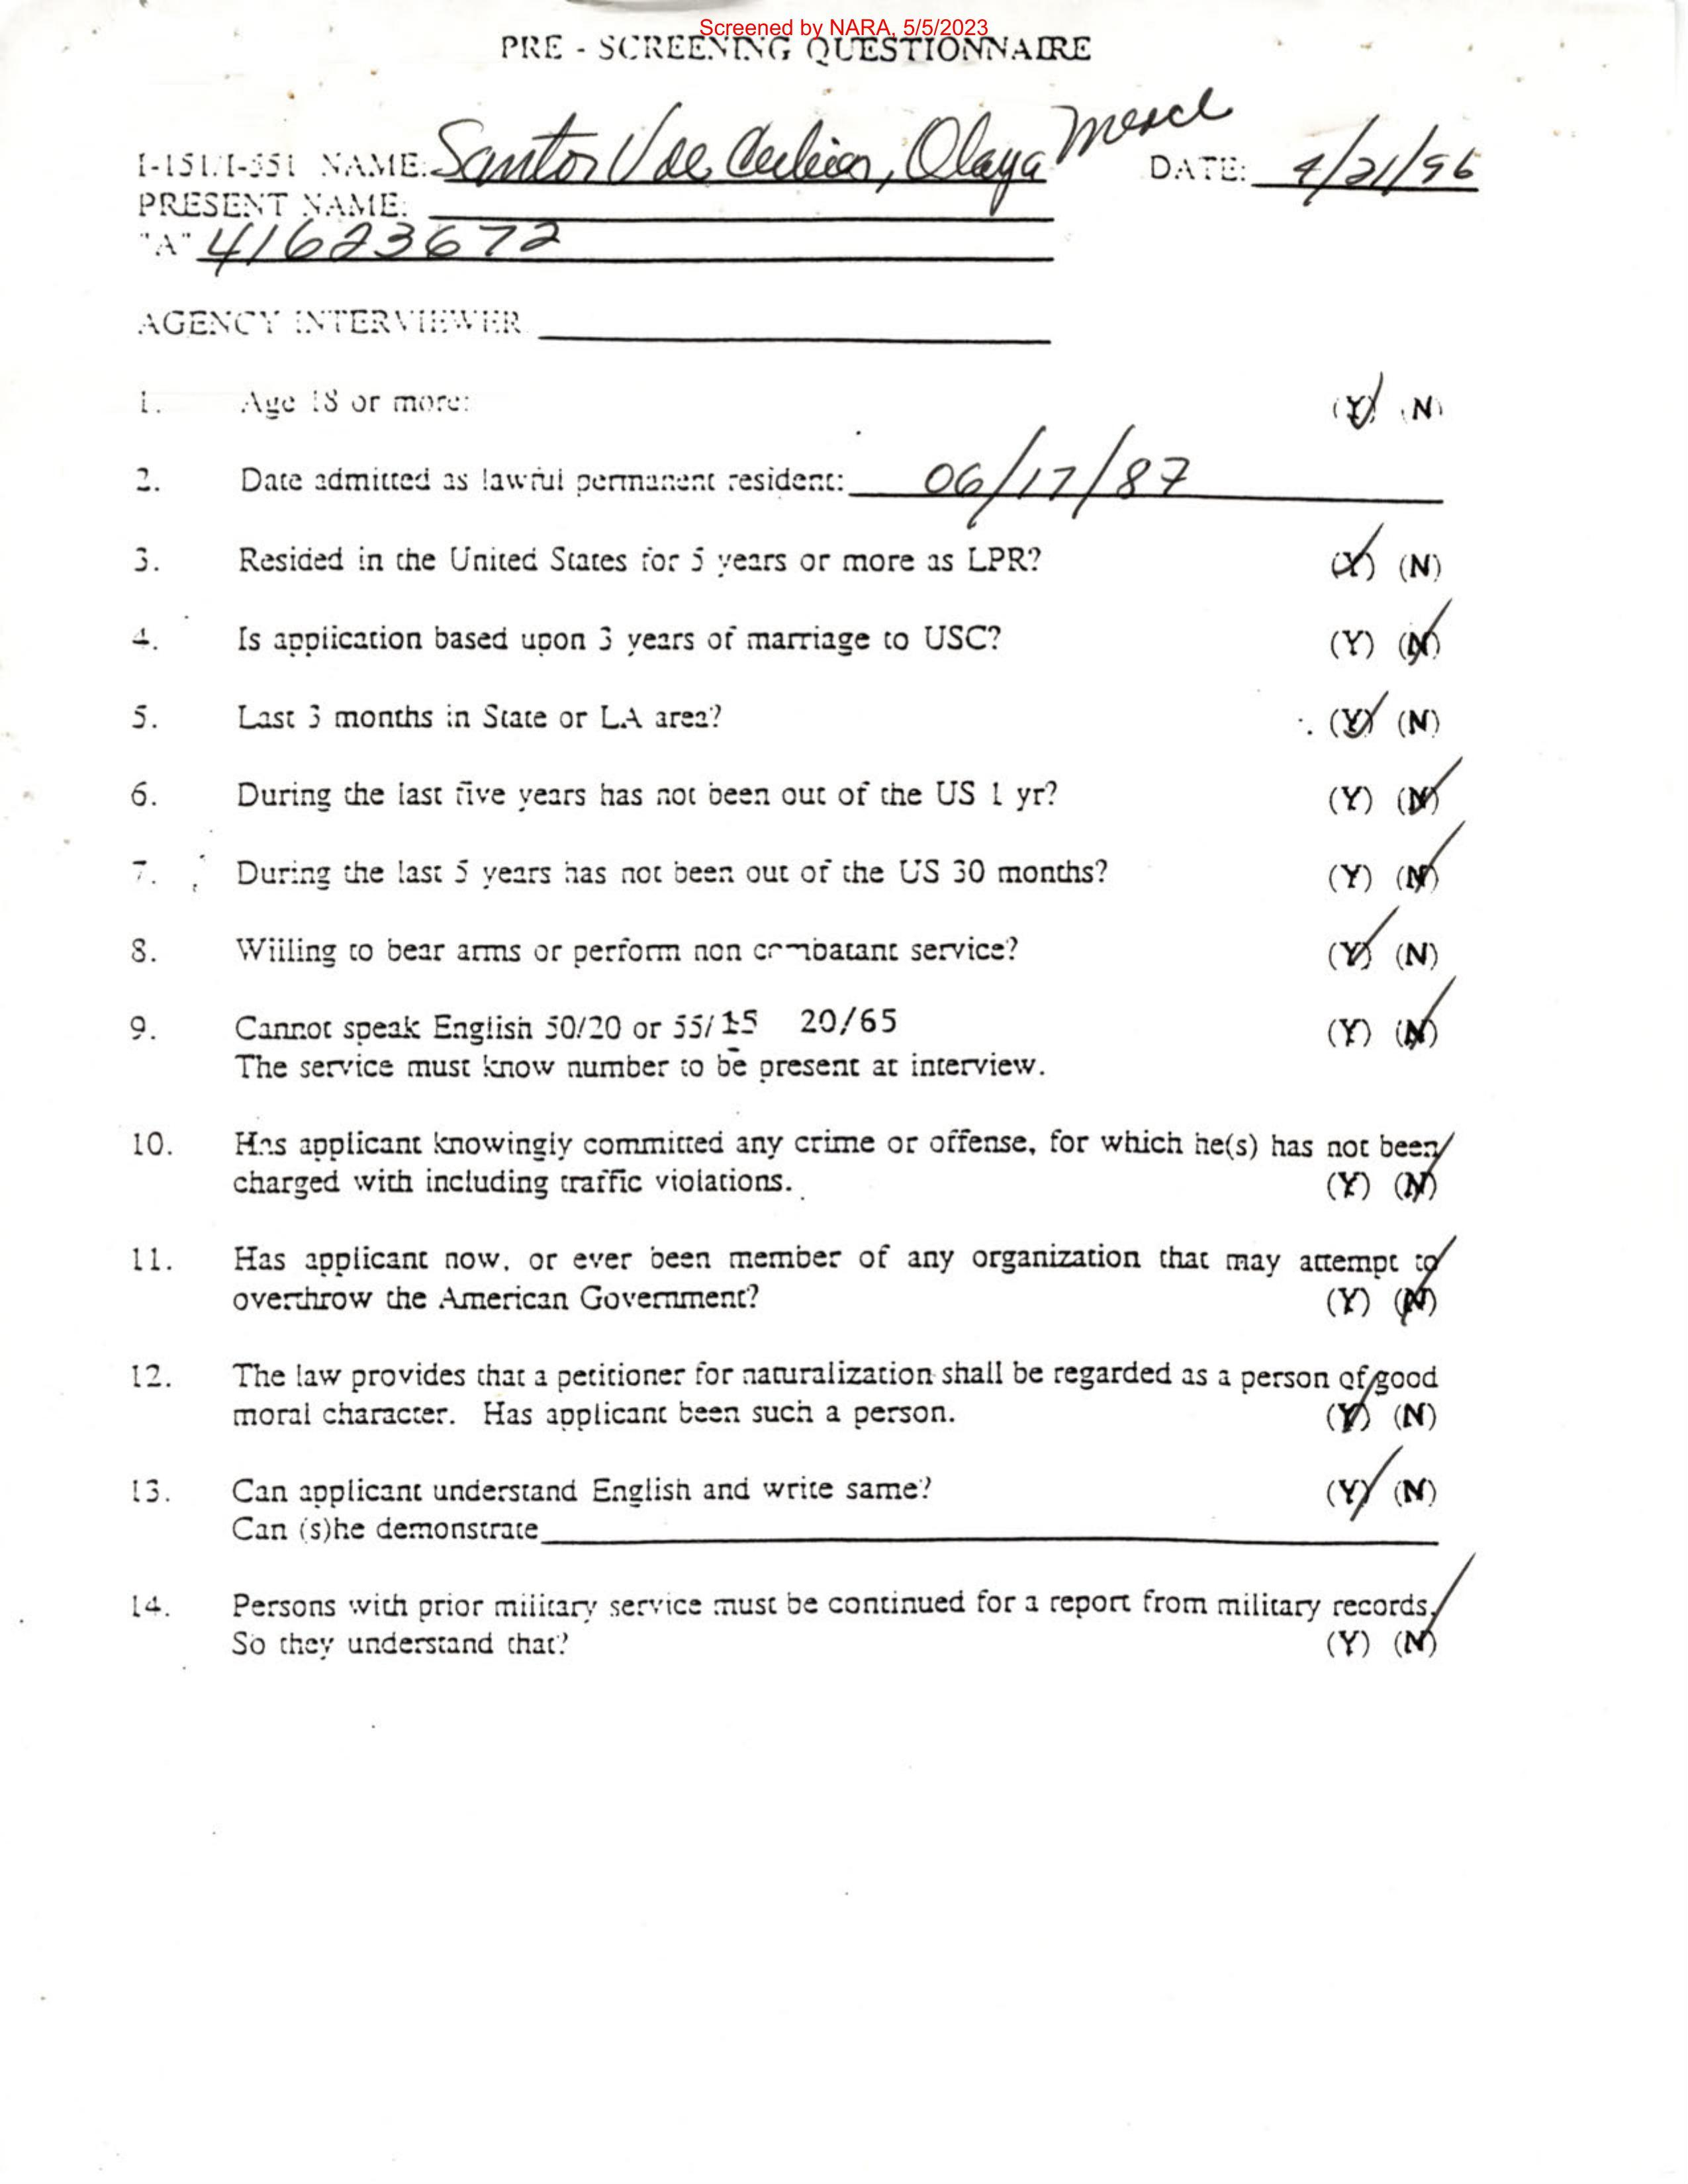 Screened by NARA, 5/5/2023
PRE - SCREENING QUESTIONNAIRE
I-151/I-551 NAME: Santos V de , Olaya DATE: 4/21/96
PRESENT NAME:
"A" 41623672
AGENCY INTERVIEWER
1. Age 18 or more: (Y) (N)
2. Date admitted as lawful permanent resident: 06/17/87
3. Resided in the United States for 5 years or more as LPR? (Y) (N)
4. Is application based upon 3 years of marriage to USC? (Y) (N)
5. Last 3 months in State or LA area? (Y) (N)
6. During the last five years has not been out of the US 1 yr? (Y) (N)
7. During the last 5 years has not been out of the US 30 months? (Y) (N)
8. Willing to bear arms or perform non combatant service? (Y) (N)
9. Cannot speak English 50/20 or 55/15 20/65 (Y) (N)
The service must know number to be present at interview.
10. Has applicant knowingly committed any crime or offense, for which he(s) has not been
charged with including traffic violations. (Y) (N)
11. Has applicant now, or ever been member of any organization that may attempt to
overthrow the American Government? (Y) (N)
12. The law provides that a petitioner for naturalization shall be regarded as a person of good
moral character. Has applicant been such a person. (Y) (N)
13. Can applicant understand English and write same? (Y) (N)
Can (s)he demonstrate
14. Persons with prior military service must be continued for a report from military records.
So they understand that? (Y) (N)